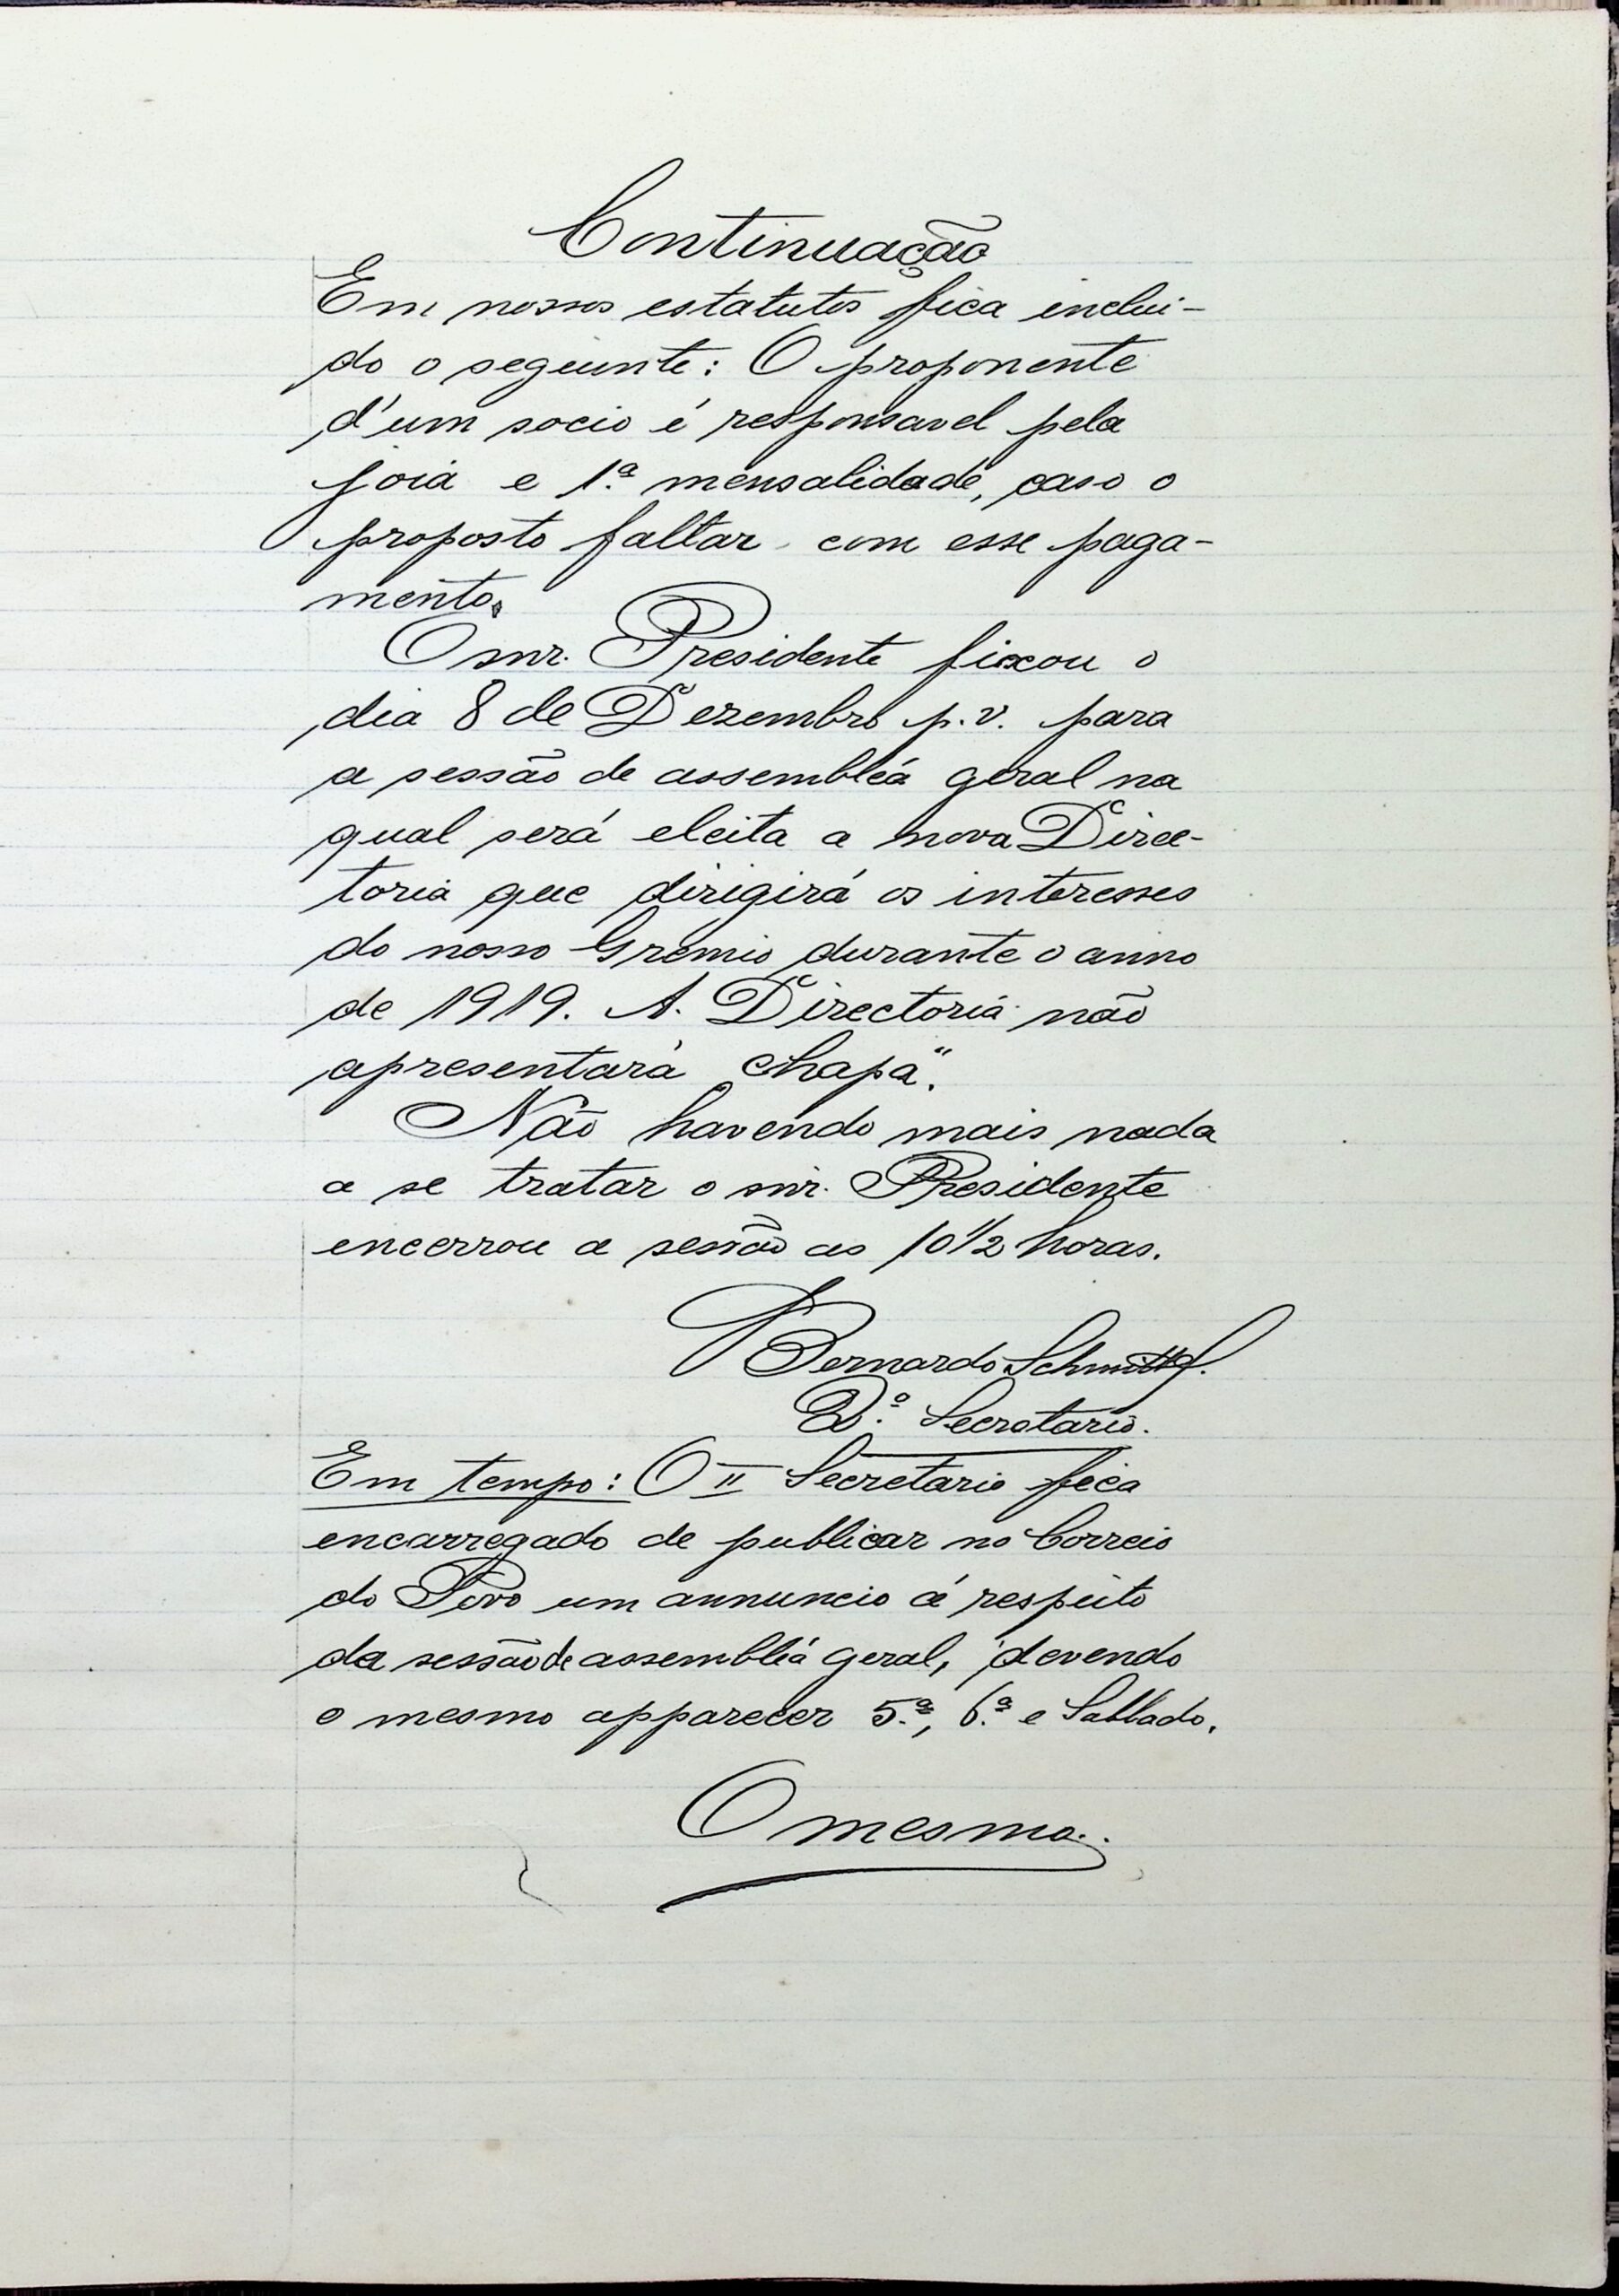 Continuação
Em nossos estatutos fica inclui-
do o seguinte: O proponente
d'um socio é responsavel pela
joia e 1.ª mensalidade, caso o
proposto faltar com esse paga-
mento.
O snr. Presidente fixou o
dia 8 de Dezembro p.v. para
a sessão de assembléa geral na
qual será eleita a nova Direc-
toria que dirigirá os interesses
do nosso Gremio durante o anno
de 1919. A Directoria não
apresentará chapa".
Não havendo mais nada
a se tratar o snr. Presidente
encerrou a sessão as 10 1/2 horas.
Bernardo Schmitt
2.º Secretario.
Em tempo: O II Secretario fica
encarregado de publicar no Correio
do Povo um annuncio á respeito
da sessão de assembléa geral, devendo
o mesmo apparecer 5.ª, 6.ª e Sabbado.
O mesmo.